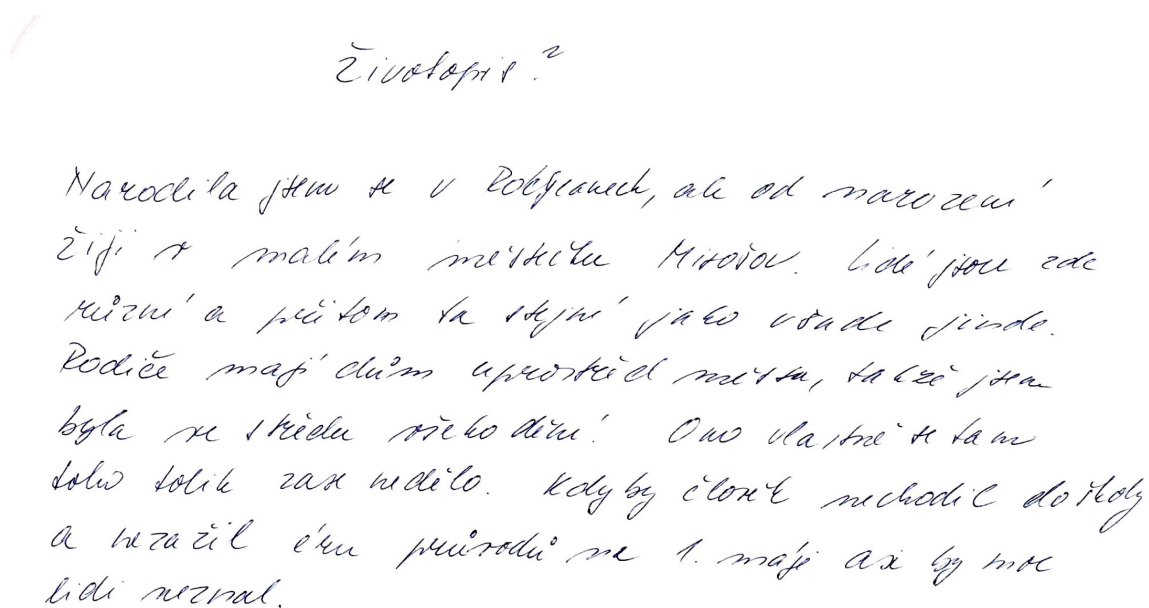 Životopis?
Narodila jsem se v Rokycanech, ale od narození
žiji v malém městečku Mirošov. Lidé jsou zde
různí a přitom ta stejní jako všude jinde.
Rodiče mají dům uprostřed města, takže jsem
byla ve středu všeho dění. Ono vlastně se tam
toho tolik zase nedělo. Kdyby člověk nechodil do školy
a nezažil éru průvodů na 1. máje asi by moc
lidi neznal.